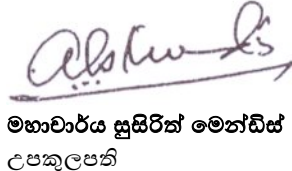 මහාචාර්ය සුසිරිත් මෙන්ඩිස්
උපකුලපති